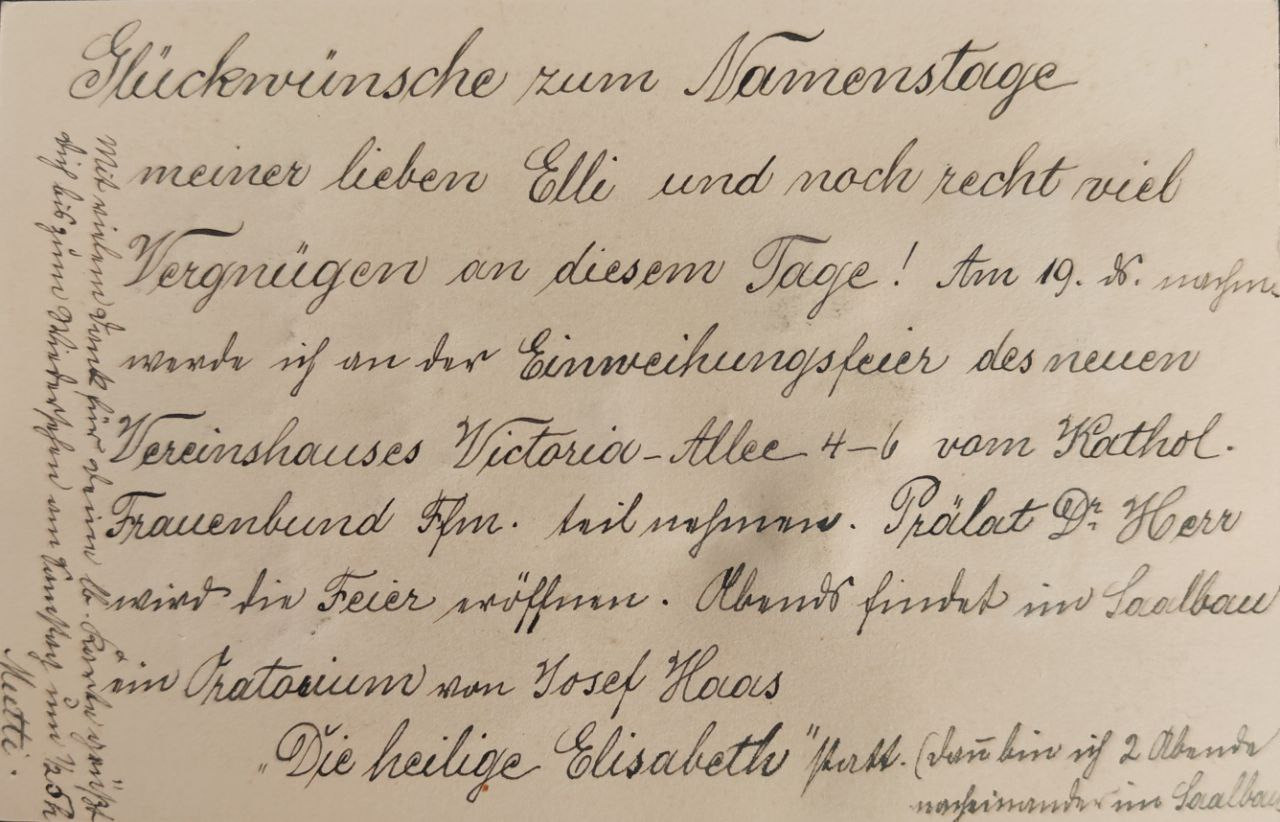 Glückwünsche zum Namenstage
meiner lieben Elli und noch recht viel
Vergnügen an diesem Tage! Am 19. ds. nachm.
werde ich an der Einweihungsfeier des neuen
Vereinshauses Victoria-Allee 4-6 vom Kathol.
Frauenbund Ffm. teil nehmen. Prälat Dr. Herr
wird die Feier eröffnen. Abends findet im Saalbau
ein Oratorium von Josef Haas
„Die heilige Elisabeth" statt. (dann bin ich 2 Abende
nacheinander im Saalbau
Mit vielem Dank für deine lb. Karte grüßt
dich bis zum Wiedersehen am Samstag um ½5h
Mutti.